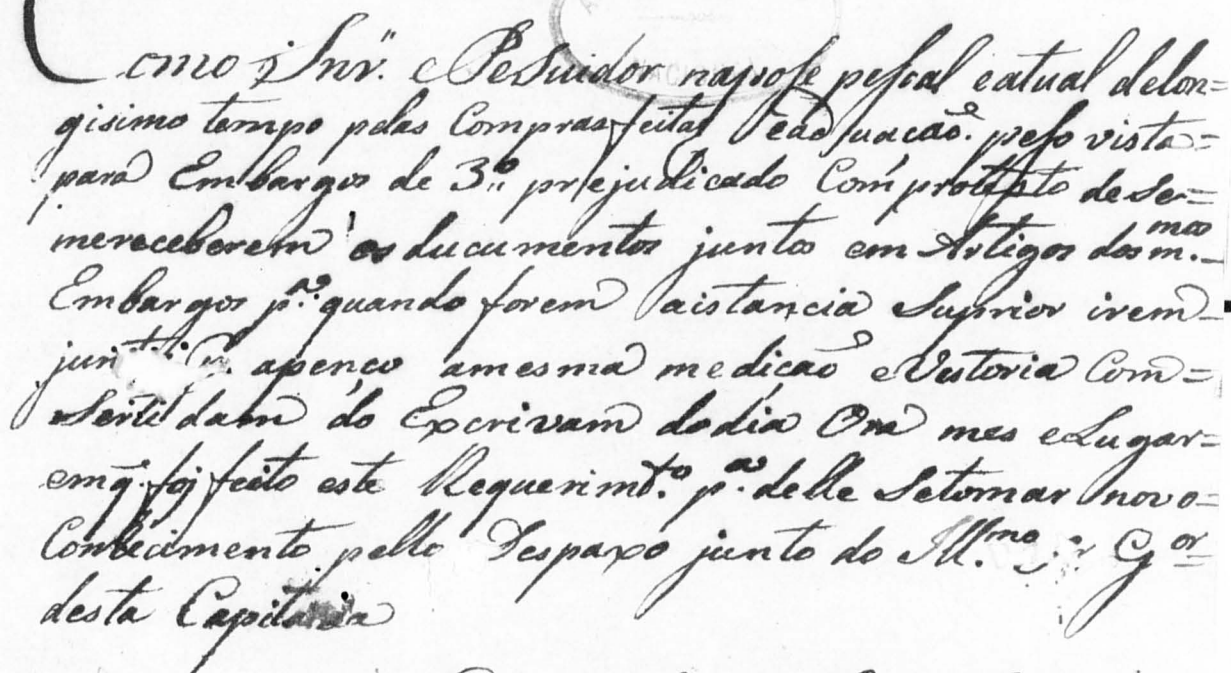 Como Snr. e Pesuidor na pose pesoal e atual de lon=
gisimo tempo pelas Compras feitas e aduacaõ. peso vista=
para Embargos de 3.º prejudicado Com protesto de se=
me receberem os ducumentos juntos em Artigos dos m.mos
Embargos p.ª quando forem a istancia Suprior irem=
apenço a mesma medicaõ e Vestoria Com=
Sertidam do Excrivam do dia Ora mes e Lugar=
em q̃. foi feito este Requerimt.º p.ª delle Se tomar novo=
Conhecimento pello Despaxo junto do Ill.mo Sr. G.or
desta Capitania